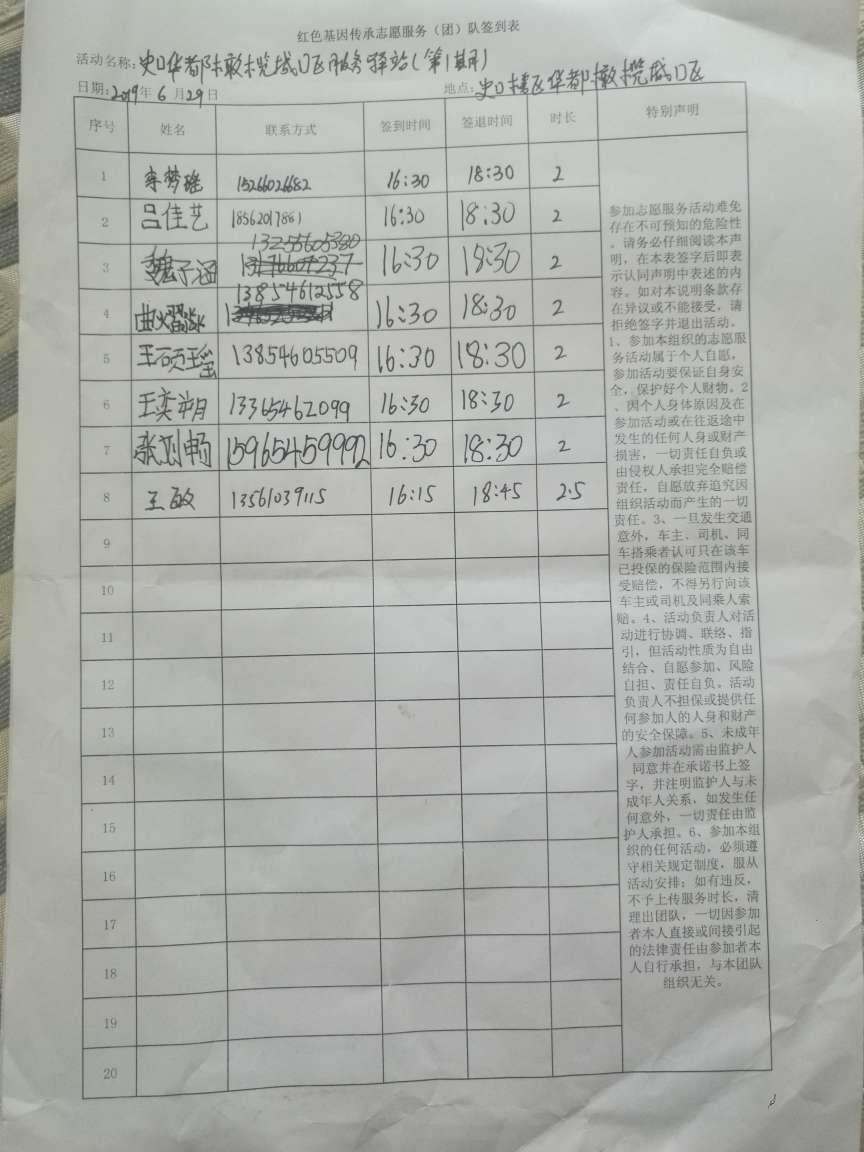 红色基因传承志愿服务（团）队签到表
活动名称：史口华都橄榄城门区服务驿站（第1期）
日期：2019年 6 月29日 地点：史口 华都橄榄城门区
序号 姓名 联系方式 签到时间 签退时间 时长 特别声明
1 李梦 15266026682 16:30 18:30 2
2 吕佳艺 18562017881 16:30 18:30 2
3 魏子涵 13255605380 16:30 18:30 2
4 曲 13854612558 16:30 18:30 2
5 王硕瑶 13854605509 16:30 18:30 2
6 王奕 13365462099 16:30 18:30 2
7 张刘畅 15965459992 16:30 18:30 2
8 王敏 13561039115 16:15 18:45 2.5
9
10
11
12
13
14
15
16
17
18
19
20
参加志愿服务活动难免
存在不可预知的危险性
。请务必仔细阅读本声
明，在本表签字后即表
示认同声明中表述的内
容。如对本说明条款存
在异议或不能接受，请
拒绝签字并退出活动。
1、参加本组织的志愿服
务活动属于个人自愿，
参加活动要保证自身安
全，保护好个人财物。2
、因个人身体原因及在
参加活动或在往返途中
发生的任何人身或财产
损害，一切责任自负或
由侵权人承担完全赔偿
责任，自愿放弃追究因
组织活动而产生的一切
责任。3、一旦发生交通
意外，车主、司机、同
车搭乘者认可只在该车
已投保的保险范围内接
受赔偿，不得另行向该
车主或司机及同乘人索
赔。4、活动负责人对活
动进行协调、联络、指
引，但活动性质为自由
结合、自愿参加、风险
自担、责任自负。活动
负责人不担保或提供任
何参加人的人身和财产
的安全保障。5、未成年
人参加活动需由监护人
同意并在承诺书上签
字，并注明监护人与未
成年人关系，如发生任
何意外，一切责任由监
护人承担。6、参加本组
织的任何活动，必须遵
守相关规定制度，服从
活动安排；如有违反，
不予上传服务时长，清
理出团队，一切因参加
者本人直接或间接引起
的法律责任由参加者本
人自行承担，与本团队
组织无关。